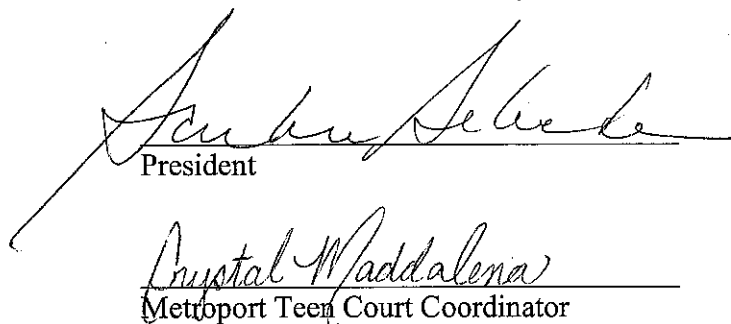 President
Crystal Maddalena
Metroport Teen Court Coordinator